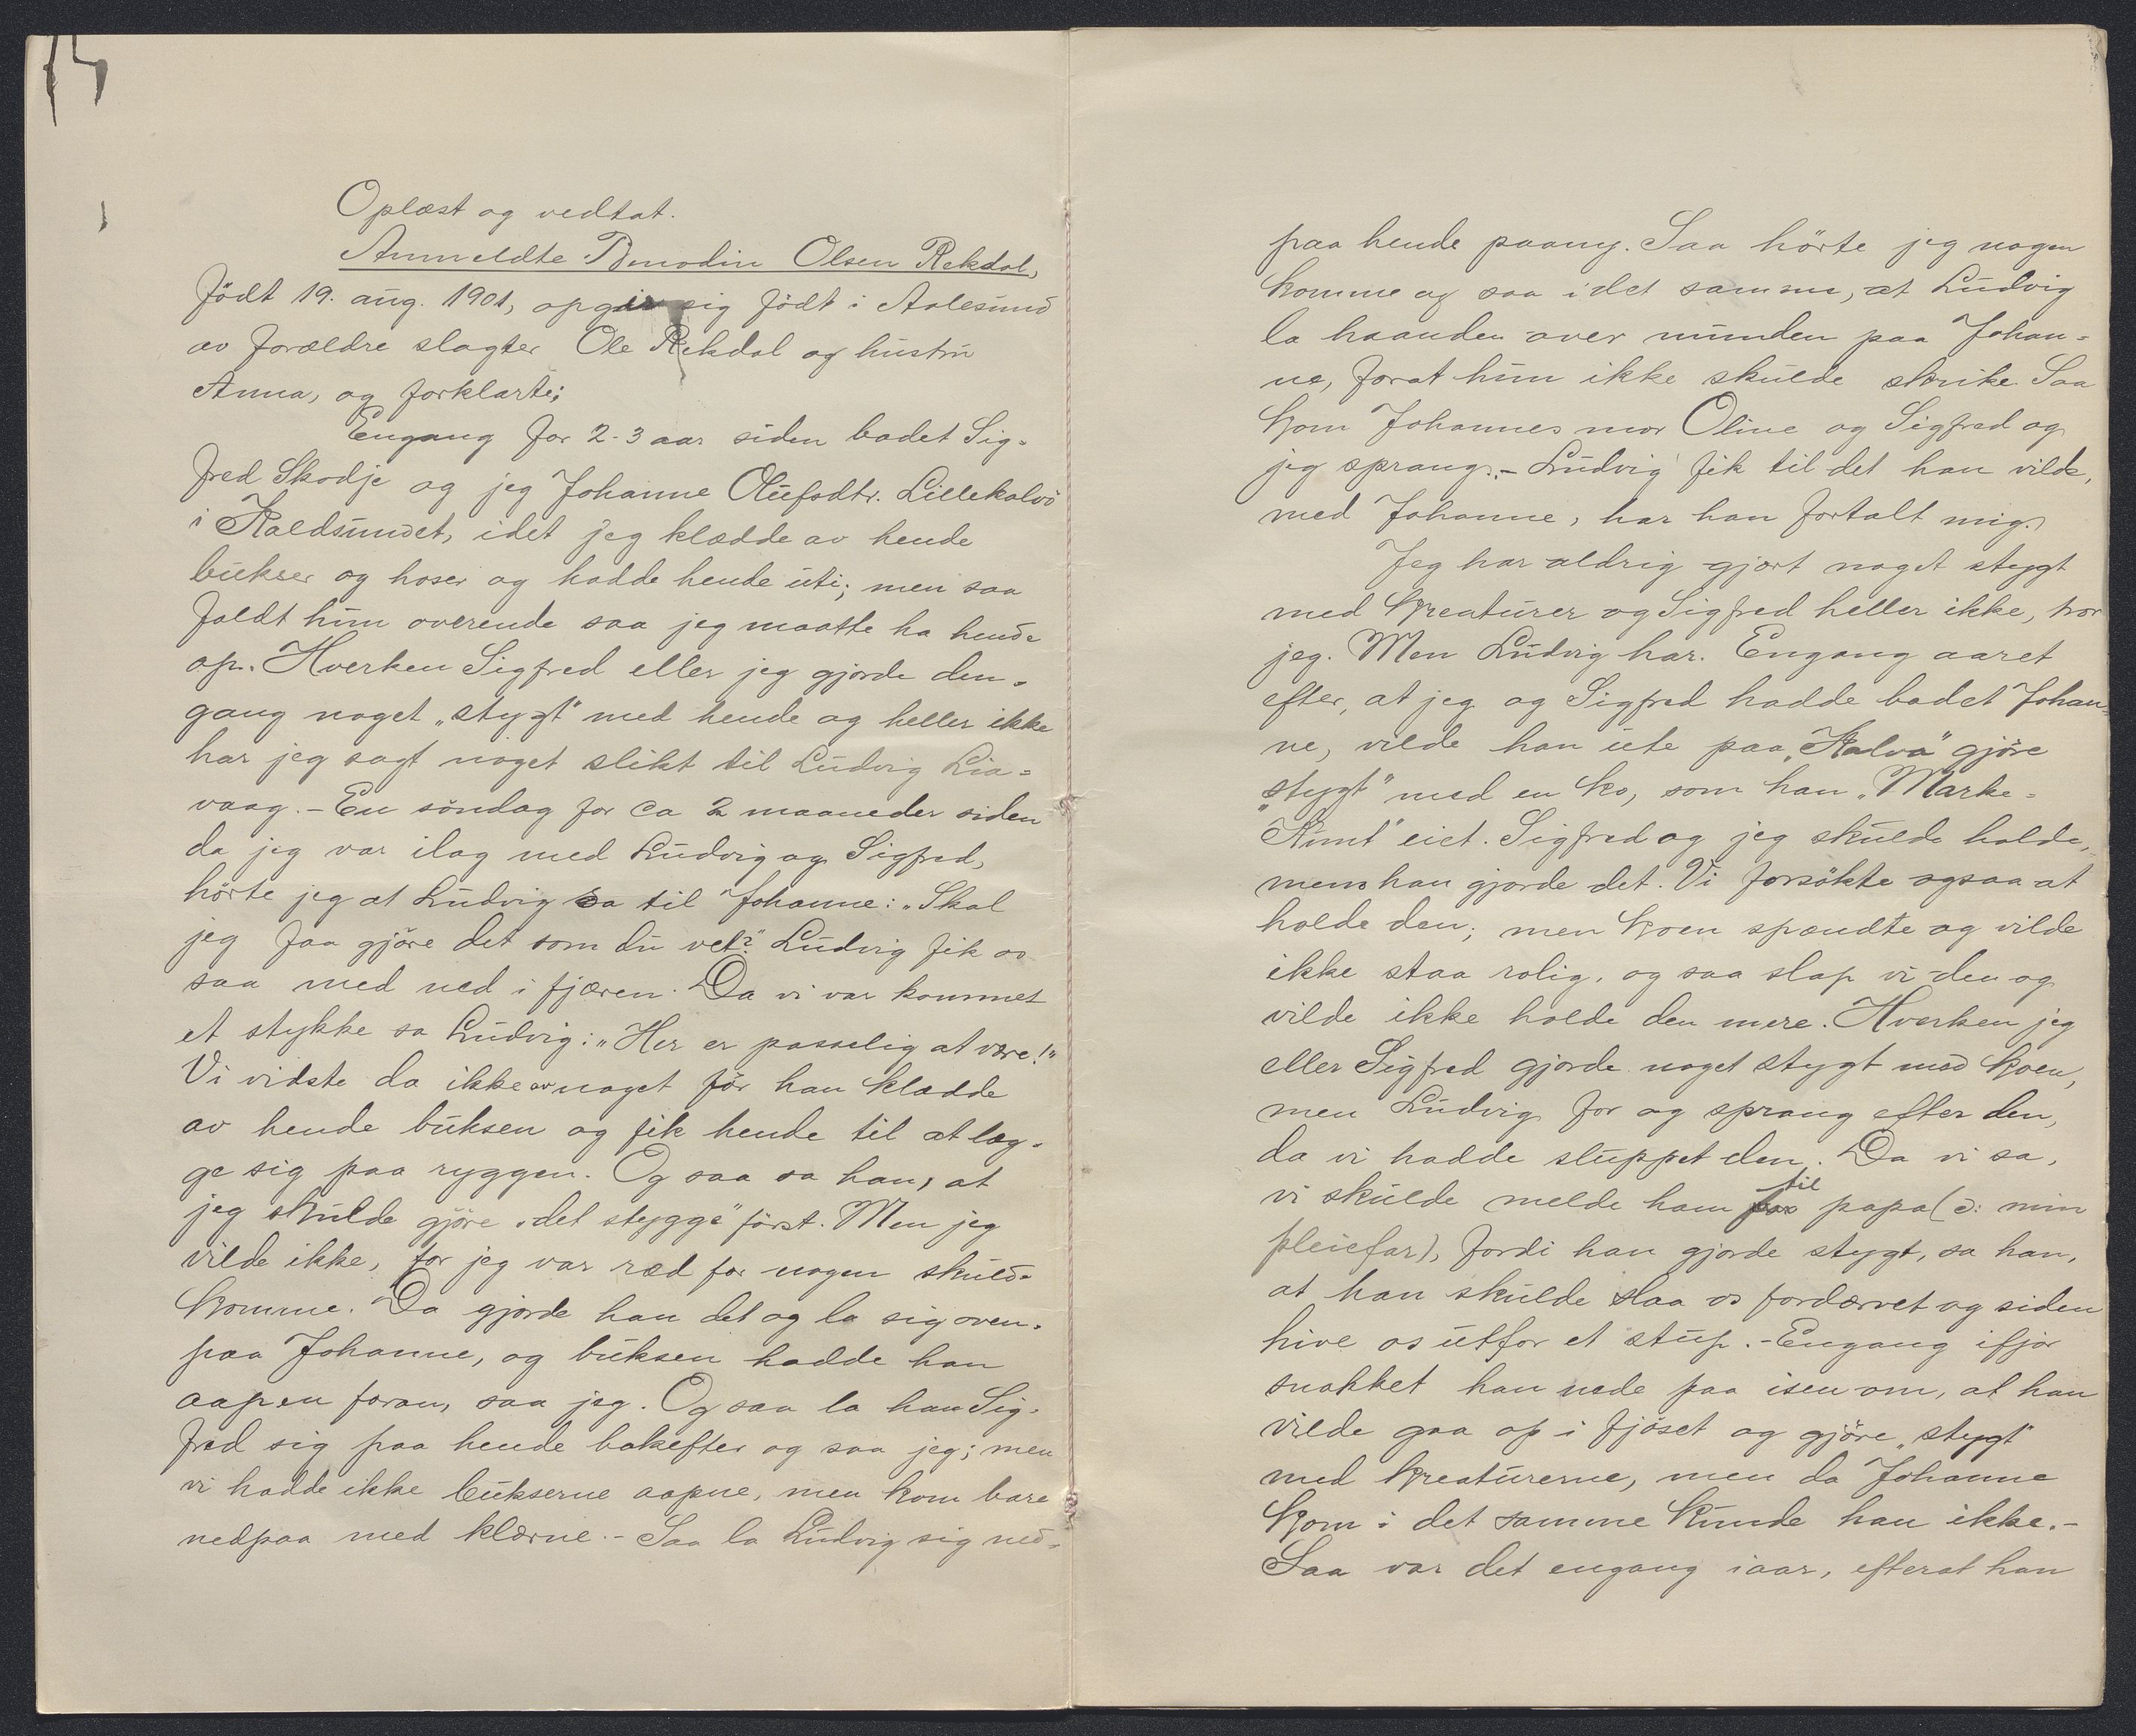 Oplæst og vedtat.
Anmeldte Benodin Olsen Rekdal,
födt 19. aug. 1901, opgir sig födt i Aalesund
av forældre slagter Ole Rekdal og hustru
Anna, og forklarte:
Engang for 2-3 aar siden badet Sig-
fred Skodje og jeg Johanne Olufsdtr. Lillekalvö
i Kaldsundet, idet jeg klædde av hende
bukser og hoser og hadde hende uti; men saa
faldt hun overende saa jeg maatte ha hende
op. Hverken Sigfred eller jeg gjorde den-
gang noget „stygt" med hende og heller ikke
har jeg sagt noget slikt til Ludvig Lia-
vaag. - En söndag for ca 2 maaneder siden
da jeg var ilag med Ludvig og Sigfred,
hörte jeg at Ludvig sa til Johanne: „Skal
jeg faa gjöre det som du vet?" Ludvig fik os
saa med ned i fjæren. Da vi var kommet
et stykke sa Ludvig: „Her er passelig at være!"
Vi vidste da ikke av noget för han klædde
av hende buksen og fik hende til at læg-
ge sig paa ryggen. Og saa sa han, at
jeg skulde gjöre „det stygge" först. Men jeg
vilde ikke, for jeg var ræd for nogen skulde
komme. Da gjorde han det og la sig oven-
paa Johanne, og buksen hadde han
aapen foran, saa jeg. Og saa la han Sig-
fred sig paa hende bakefter og saa jeg; men
vi hadde ikke bukserne aapne, men kom bare
nedpaa med klærne. - Saa la Ludvig sig ned-
paa hende paany. Saa hörte jeg nogen
komme og saa i det samme, at Ludvig
la haanden over munden paa Johan-
ne, forat hun ikke skulde skrike. Saa
kom Johannes mor Oline og Sigfred og
jeg sprang. - Ludvig fik til det han vilde,
med Johanne, har han fortalt mig.
Jeg har aldrig gjort noget stygt
med kreaturer og Sigfred heller ikke, tror
jeg. Men Ludvig har. Engang aaret
efter, at jeg og Sigfred hadde badet Johan-
ne, vilde han ute paa „Kalva" gjöre
„stygt" med en ko, som han „Marke-
Knut" eiet. Sigfred og jeg skulde holde,
mens han gjorde det. Vi forsökte ogsaa at
holde den; men koen spændte og vilde
ikke staa rolig, og saa slap vi den og
vilde ikke holde den mere. Hverken jeg
eller Sigfred gjorde noget stygt med koen,
men Ludvig for og sprang efter den,
da vi hadde sluppet den. Da vi sa,
vi skulde melde ham til papa (ɔ: min
pleiefar), fordi han gjorde stygt, sa han,
at han skulde slaa os fordærvet og siden
hive os utfor et stup. - Engang ifjor
snakket han nede paa isen om, at han
vilde gaa op i fjöset og gjöre „stygt"
med kreaturerne, men da Johanne
kom i det samme kunde han ikke. -
Saa var det engang iaar, efterat han